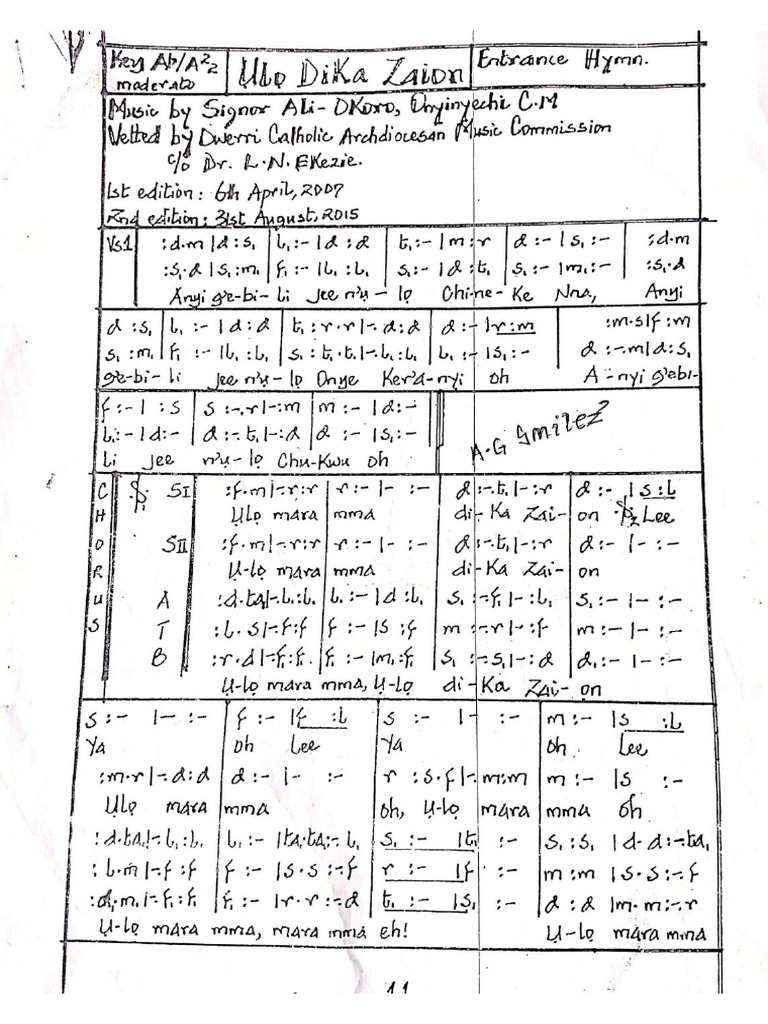 Key Ab/A 2/2
moderato
Ulọ Dika Zaion
Entrance Hymn.
Music by Signor Ali-Okoro, Onyinyechi C.M
Vetted by Owerri Catholic Archdiocesan Music Commission
c/o Dr. L.N. Ekezie.
1st edition: 6th April, 2007
2nd edition: 31st August, 2015
Vs1 :d.m|d:s₁ l₁:-|d:d t₁:-|m:r d:-|s₁:- :d.m
:s₁.d|s₁:m₁ f₁:-|l₁:l₁ s₁:-|d:t₁ s₁:-|m₁:- :s₁.d
Anyi g'e-bi-li jee n'ụ-lọ Chi-ne-Ke Nna, Anyi
d:s₁ l₁:-|d:d t₁:r.r|-.d:d d:-|r:m :m.s|f:m
s₁:m₁ f₁:-|l₁:l₁ s₁:t₁.t₁|-.l₁:l₁ l₁:-|s₁:- d:-.m|d:s₁
g'e-bi-li jee n'ụ-lọ Onye Ker'a-nyi oh A-nyi g'ebi-
f:-|:s s:-.r|-:m m:-|d:-
l₁:-|d:- d:-.t₁|-:d d:-|s₁:-
li jee n'ụ-lọ Chu-Kwu oh
A.G Smilez
CHORUS
SI :f.m|-.r:r r:-|-:- d:-.t₁|-:r d:-|s:l
Ụlọ mara mma di-Ka Zai-on Lee
SII :f.m|-.r:r r:-|-:- d:-.t₁|-:r d:-|-:-
Ụ-lọ mara mma di-Ka Zai-on
A :d.ta₁|-.l₁:l₁ l₁:-|d:l₁ s₁:-.f₁|-:l₁ s₁:-|-:-
T :l.s|-.f:f f:-|s:f m:-.r|-:f m:-|-:-
B :r.d|-.f₁:f₁ f₁:-|m₁:f₁ s₁:-.s₁|-:d d₁:-|-:-
Ụ-lọ mara mma, Ụ-lọ di-Ka Zai-on
s:-|-:- f:-|f:l s:-|-:- m:-|s:l
Ya oh Lee Ya oh Lee
:m.r|-.d:d d:-|-:- r:s.f|-.m:m m:-|s:-
Ụlọ mara mma oh, Ụ-lọ mara mma oh
:d.ta₁|-.l₁:l₁ l₁:-|ta₁.ta₁:-.l₁ s₁:-|t₁:- s₁:s₁|d.d:-.ta₁
:l.m|-.f:f f:-|s.s:-.f r:-|f:- m:m|s.s:-.f
:d₁.m₁|-.f₁:f₁ f₁:-|r.r:-.d t₁:-|s₁:- d:d|m.m:-.r
Ụ-lọ mara mma, mara mma eh! Ụ-lọ mara mma
11